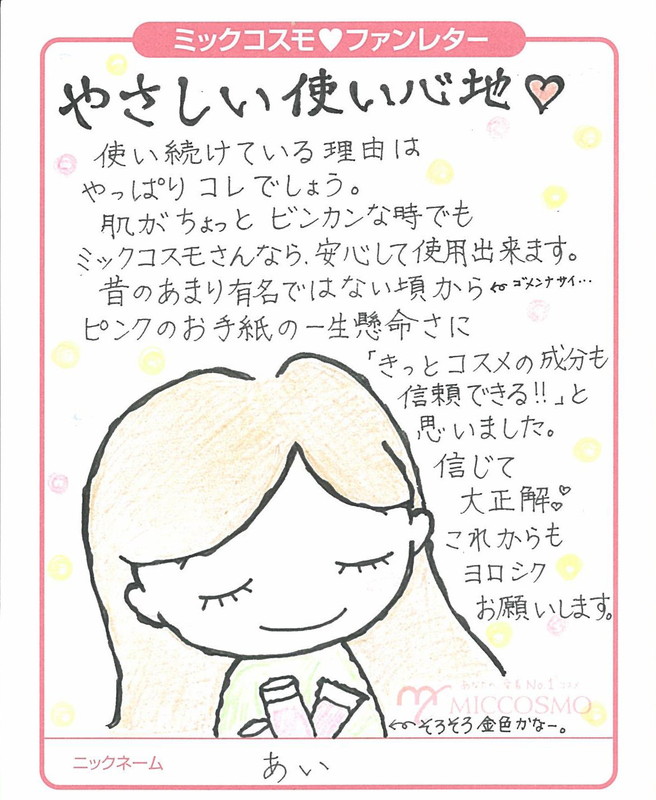 ミックコスモ♥ファンレター
やさしい使い心地♡
使い続けている理由は
やっぱりコレでしょう。
肌がちょっとビンカンな時でも
ミックコスモさんなら、安心して使用出来ます。
昔のあまり有名ではない頃から←ゴメンナサイ…
ピンクのお手紙の一生懸命さに
「きっとコスメの成分も
信頼できる!!」と
思いました。
信じて
大正解♡
これからも
ヨロシク
お願いします。
No.1
MICCOSMO
←そろそろ金色かなー。
ニックネーム
あい